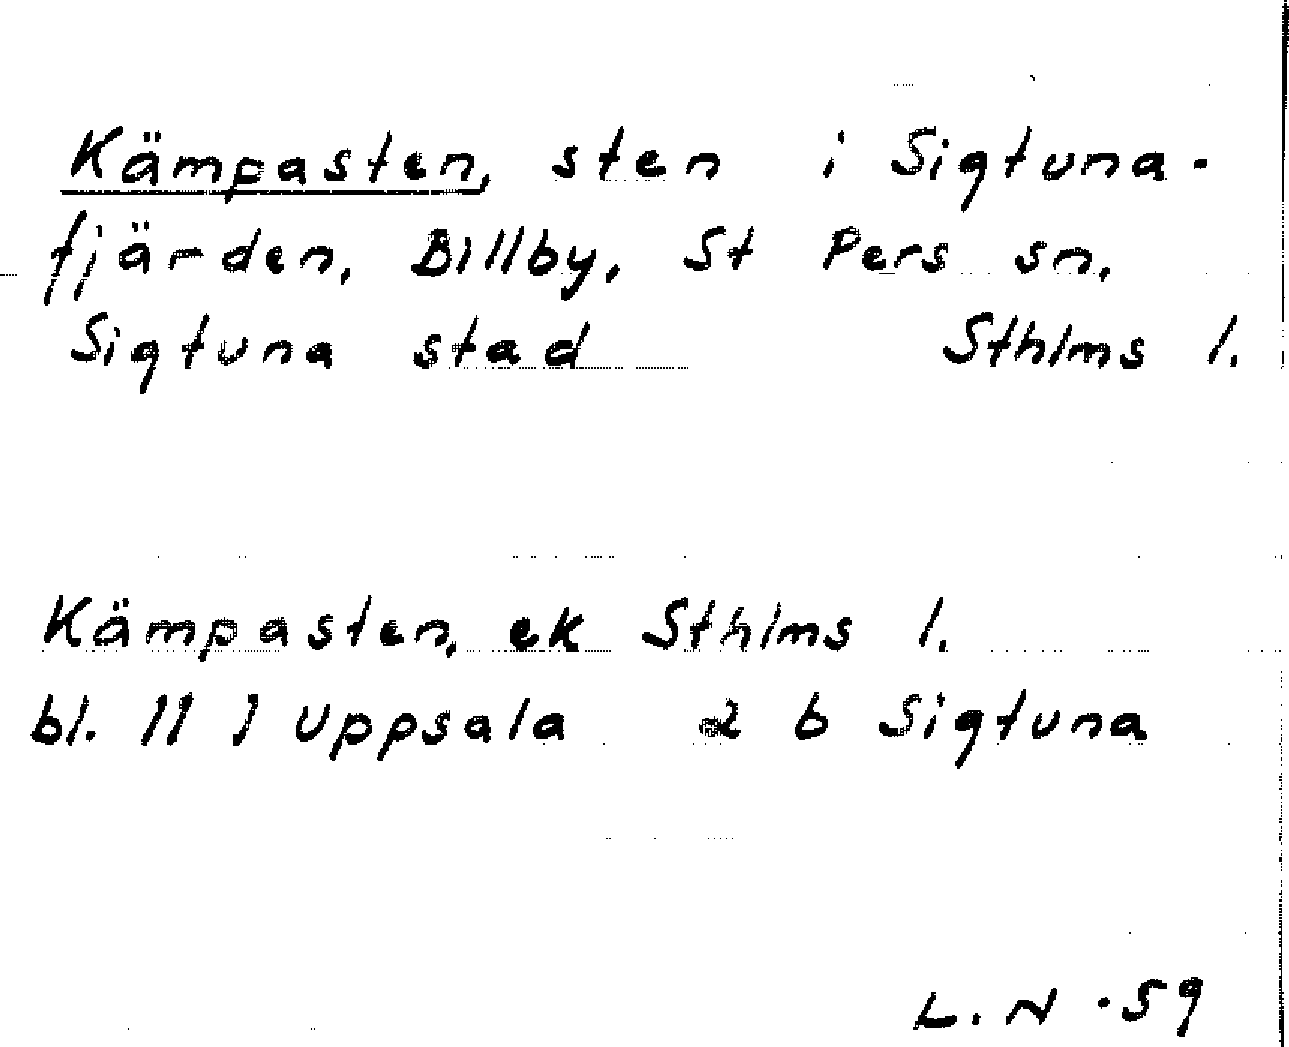 Kämpasten, sten i Sigtuna-
fjärden, Billby, St Pers sn,
Sigtuna stad Sthlms l.
Kämpasten, ek Sthlms l.
bl. 11 I Uppsala 2 b Sigtuna
L. N -59